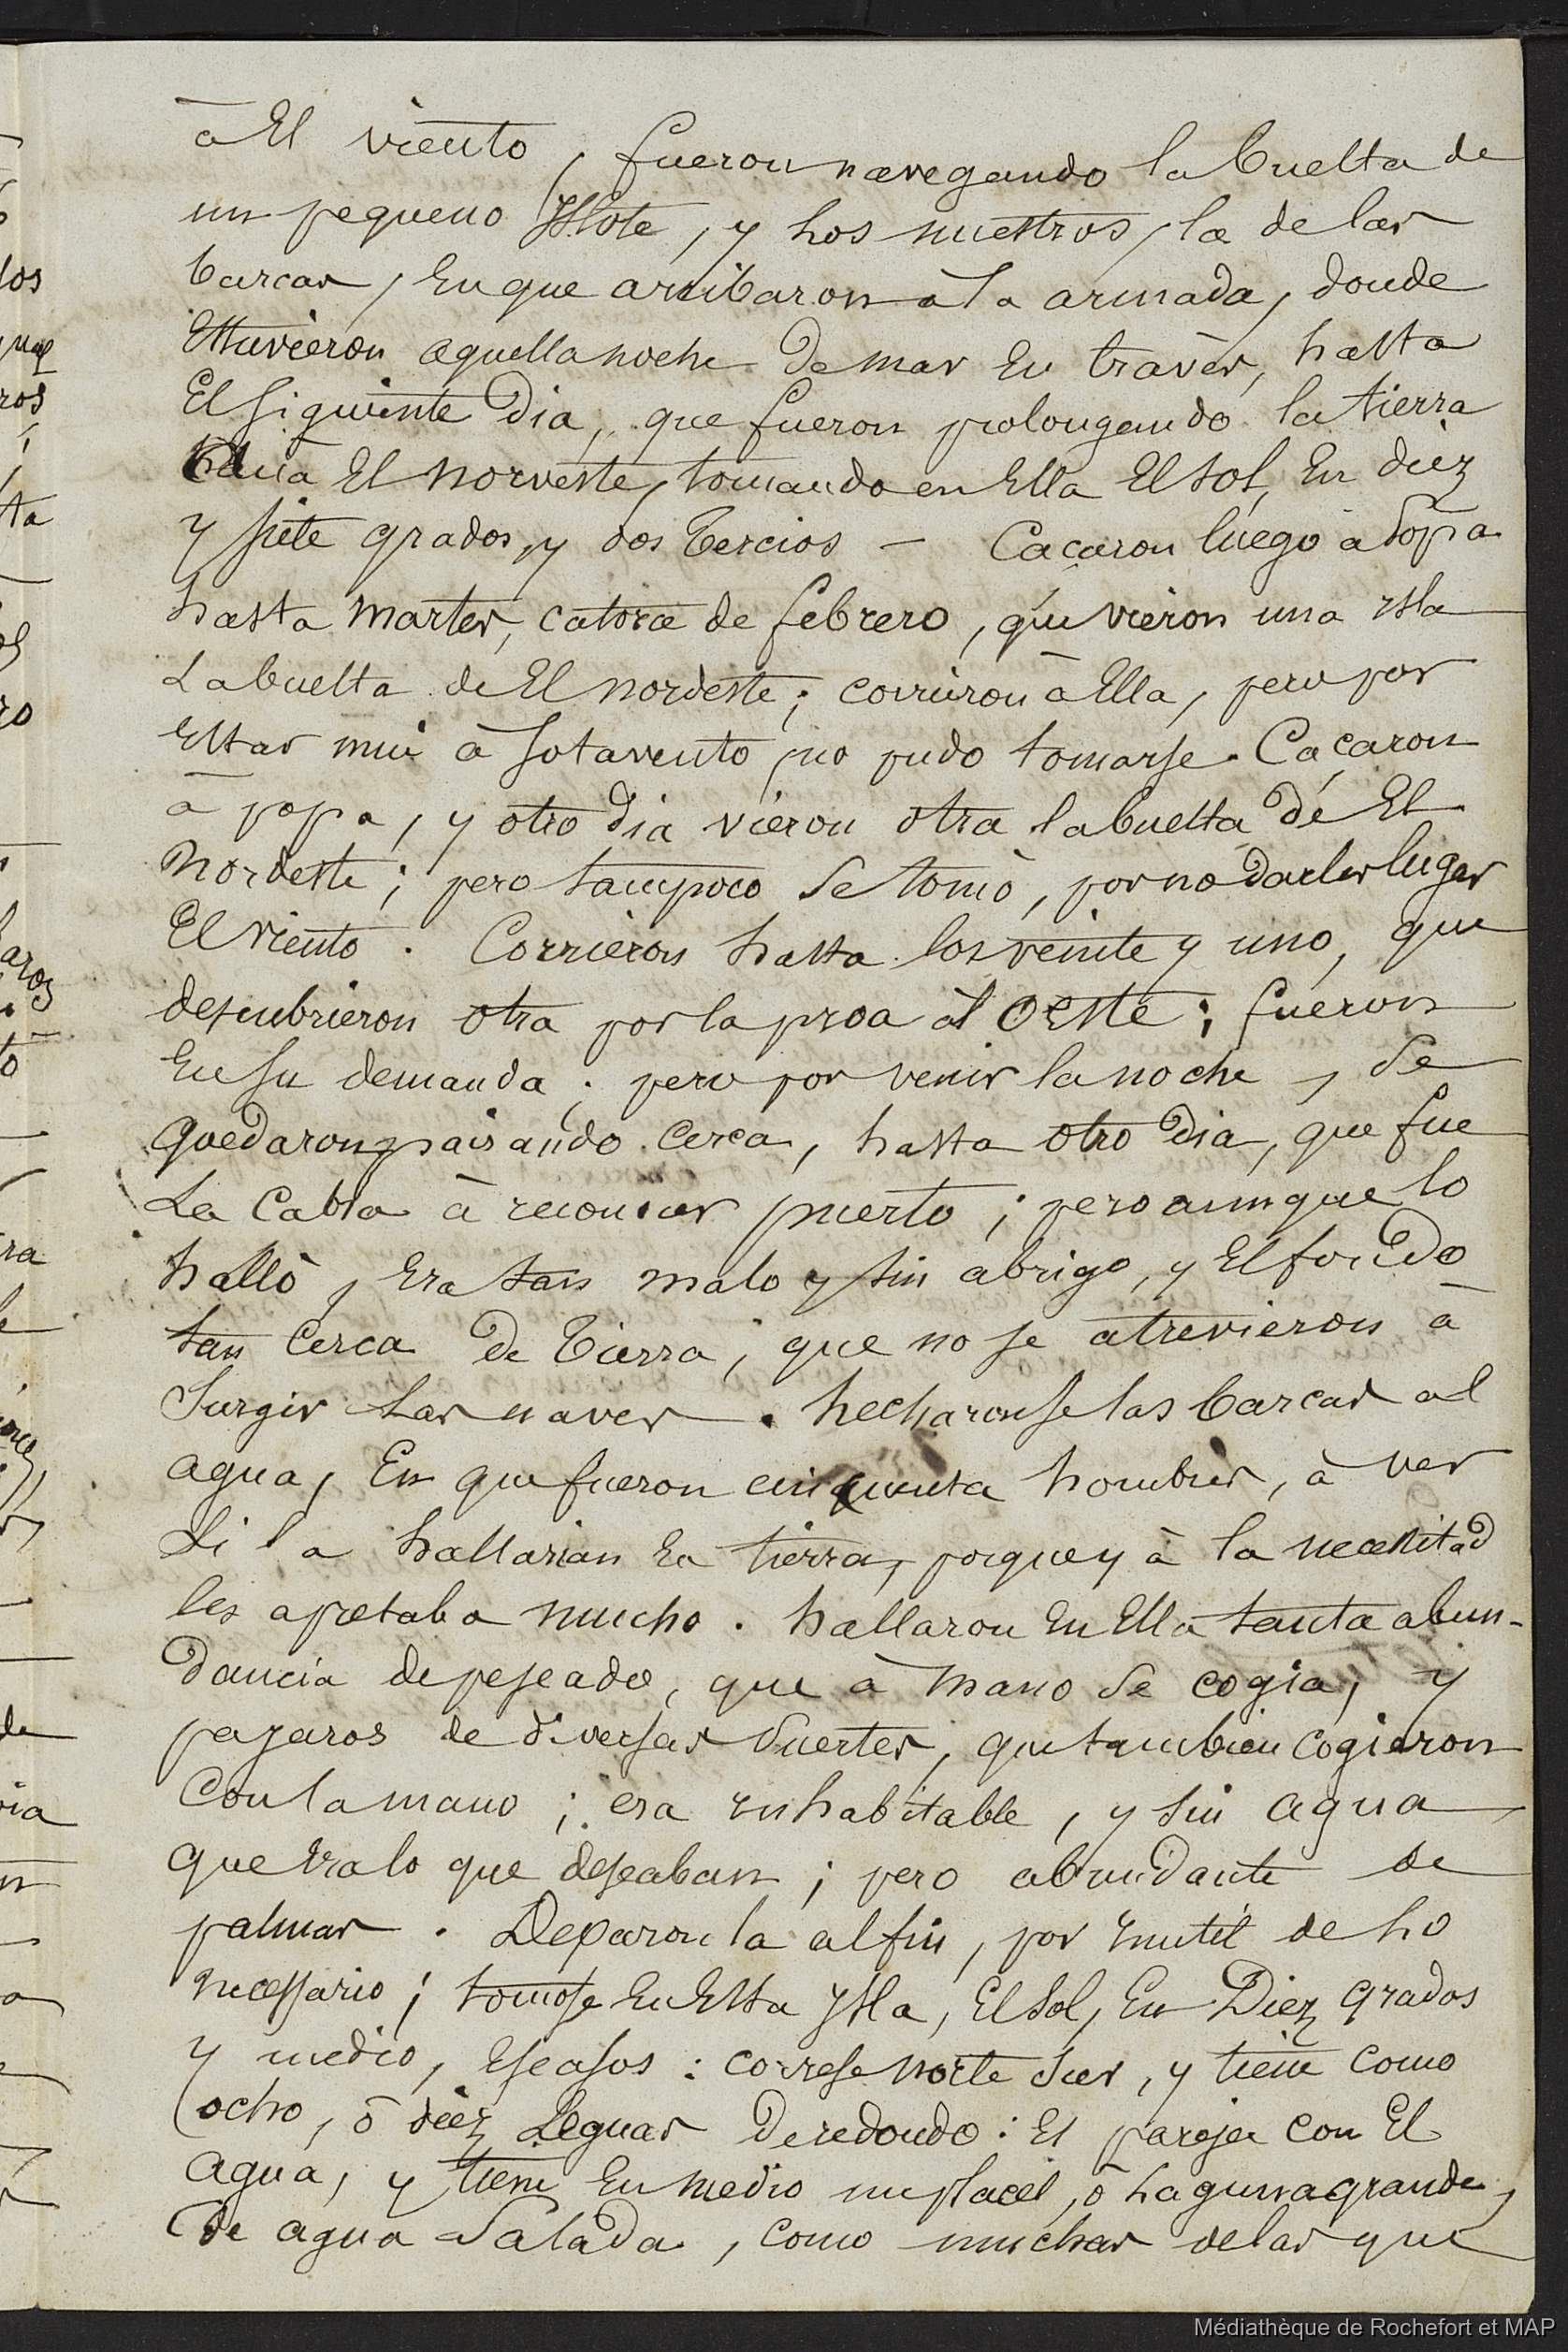 à El viento, fueron navegando la buelta de
un pequeno Yslote, y los nuestros, la de las
barcas, En que arribaron à la armada, donde
Estuvieron aquella noche de mar En travès, hasta
El siguiente dia, que fueron prolongando la tierra
hacia El norveste, tomando en Ella El sol, En diez
y siete grados, y dos tercios — Caçaron luego a popa
hasta martes, catorce de febrero, que vieron una isla
La buelta de El nordeste; corrieron à Ella, pero por
Estar mui à sotavento, no pudo tomarse. Caçaron
à popa, y otro dia vieron otra la buelta de El
nordeste; pero tampoco se tomò, por no darles lugar
El viento. Corrieron hasta los veinte y uno, que
descubrieron otra por la proa àl oeste; fueron
En su demanda; pero por venir la noche, se
quedaron pairando cerca, hasta otro dia, que fue
La Cabra à reconocer puerto; pero aunque lo
hallò, Era tan malo y sin abrigo, y El fondo
tan cerca de tierra, que no se atrevieron à
surgir Las naves. hecharonse las barcas al
agua, En que fueron cinquenta hombres, à ver
si la hallarian En tierra, porque yà la necessitad
les apretaba mucho. hallaron En Ella tanta abun-
dancia de pescado, que à mano se cogia, y
pajaros de diversas suertes, que tambien cogieron
con la mano; era inhabitable, y sin agua
que Era lo que deseaban; pero abundante de
palmas. Dexaron la al fin, por inutil de lo
necessario; tomose En Esta ysla, El sol, En Diez grados
y medio, Escasos: correse norte sur, y tiene como
ocho, ò diez Leguas de redondo: Es pareja con El
agua, y tiene En medio un placel, ò laguna grande,
de agua salada, como muchas de las que
Médiathèque de Rochefort et MAP